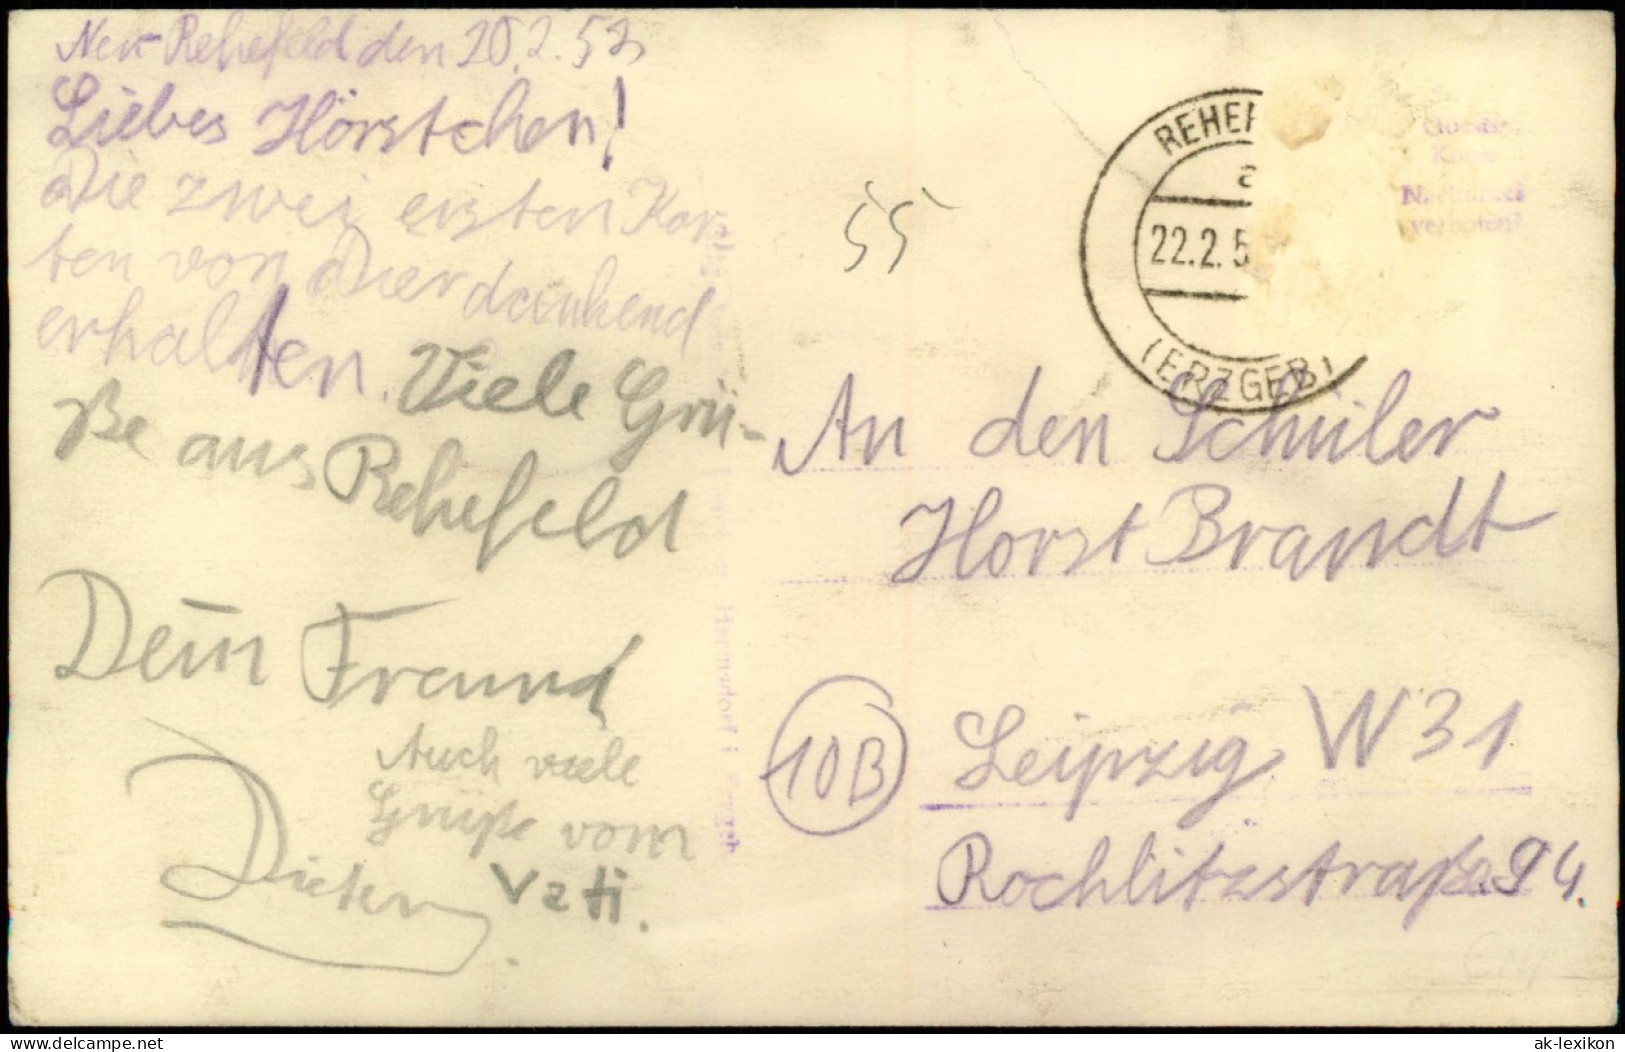 Neu-Rehefeld den 20.2.53
Liebes Hörstchen!
Die zwei ersten Kar-
ten von Dier dankend
erhalten. Viele Grü-
ße aus Rehefeld
Dein Freund
Dieter
Auch viele
Grüße vom
Vati.
55
REHEF
a
22.2.5
(ERZGEB)
Nachdruck
verboten!
An den Schüler
Horst Brandt
10B
Leipzig W 31
Rochlitzstraße 94.
Hermsdorf i. Erzgeb.
ak-lexikon
delcampe.net